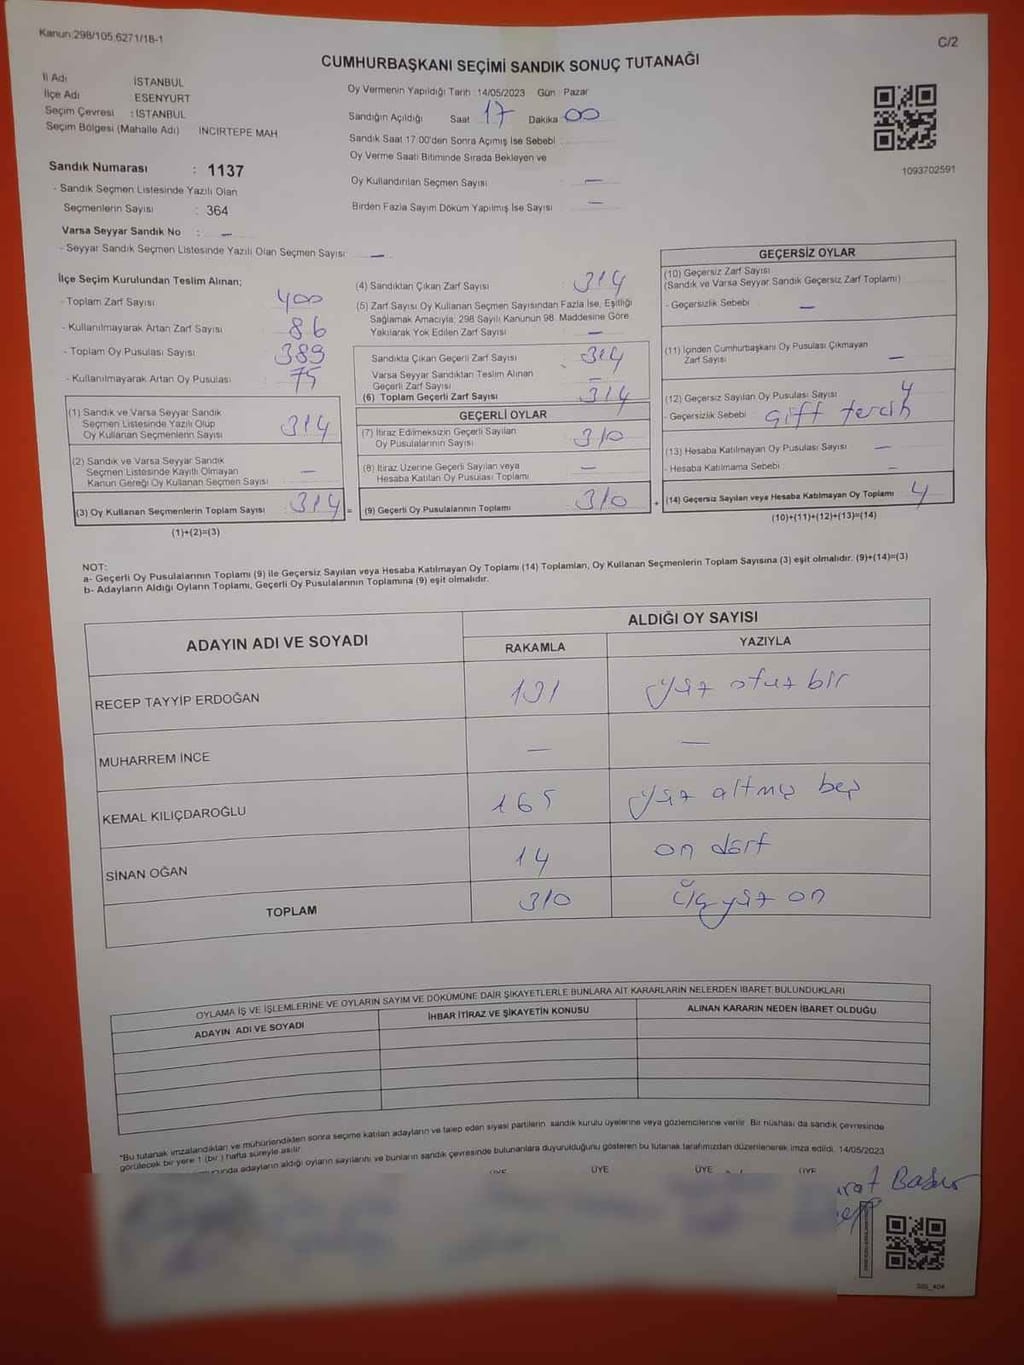 Kanun:298/105,6271/18-1
C/2
CUMHURBAŞKANI SEÇİMİ SANDIK SONUÇ TUTANAĞI
İl Adı İSTANBUL
İlçe Adı ESENYURT
Seçim Çevresi : İSTANBUL
Seçim Bölgesi (Mahalle Adı) İNCİRTEPE MAH
Oy Vermenin Yapıldığı Tarih 14/05/2023 Gün Pazar
Sandığın Açıldığı Saat 17 Dakika 00
Sandık Saat 17:00'den Sonra Açımış İse Sebebi :
Oy Verme Saati Bitiminde Sırada Bekleyen ve
Oy Kullandırılan Seçmen Sayısı : —
Birden Fazla Sayım Döküm Yapılmış İse Sayısı —
1093702591
Sandık Numarası : 1137
- Sandık Seçmen Listesinde Yazılı Olan
Seçmenlerin Sayısı : 364
Varsa Seyyar Sandık No : —
- Seyyar Sandık Seçmen Listesinde Yazılı Olan Seçmen Sayısı : —
İlçe Seçim Kurulundan Teslim Alınan;
- Toplam Zarf Sayısı 400
- Kullanılmayarak Artan Zarf Sayısı 86
- Toplam Oy Pusulası Sayısı 389
- Kullanılmayarak Artan Oy Pusulası 75
(1) Sandık ve Varsa Seyyar Sandık
Seçmen Listesinde Yazılı Olup
Oy Kullanan Seçmenlerin Sayısı 314
(2) Sandık ve Varsa Seyyar Sandık
Seçmen Listesinde Kayıtlı Olmayan
Kanun Gereği Oy Kullanan Seçmen Sayısı —
(3) Oy Kullanan Seçmenlerin Toplam Sayısı : 314 =
(1)+(2)=(3)
(4) Sandıktan Çıkan Zarf Sayısı 314
(5) Zarf Sayısı Oy Kullanan Seçmen Sayısından Fazla İse, Eşitliği
Sağlamak Amacıyla; 298 Sayılı Kanunun 98. Maddesine Göre
Yakılarak Yok Edilen Zarf Sayısı —
Sandıkta Çıkan Geçerli Zarf Sayısı 314
Varsa Seyyar Sandıktan Teslim Alınan
Geçerli Zarf Sayısı —
(6) Toplam Geçerli Zarf Sayısı 314
GEÇERLİ OYLAR
(7) İtiraz Edilmeksizin Geçerli Sayılan
Oy Pusulalarının Sayısı 310
(8) İtiraz Üzerine Geçerli Sayılan veya
Hesaba Katılan Oy Pusulası Toplamı —
(9) Geçerli Oy Pusulalarının Toplamı 310 +
GEÇERSİZ OYLAR
(10) Geçersiz Zarf Sayısı
(Sandık ve Varsa Seyyar Sandık Geçersiz Zarf Toplamı)
- Geçersizlik Sebebi —
(11) İçinden Cumhurbaşkanı Oy Pusulası Çıkmayan
Zarf Sayısı —
(12) Geçersiz Sayılan Oy Pusulası Sayısı 4
- Geçersizlik Sebebi Çift tercih
(13) Hesaba Katılmayan Oy Pusulası Sayısı —
- Hesaba Katılmama Sebebi —
(14) Geçersiz Sayılan veya Hesaba Katılmayan Oy Toplamı 4
(10)+(11)+(12)+(13)=(14)
NOT:
a- Geçerli Oy Pusulalarının Toplamı (9) ile Geçersiz Sayılan veya Hesaba Katılmayan Oy Toplamı (14) Toplamları, Oy Kullanan Seçmenlerin Toplam Sayısına (3) eşit olmalıdır. (9)+(14)=(3)
b- Adayların Aldığı Oyların Toplamı, Geçerli Oy Pusulalarının Toplamına (9) eşit olmalıdır.
ADAYIN ADI VE SOYADI ALDIĞI OY SAYISI
RAKAMLA YAZIYLA
RECEP TAYYİP ERDOĞAN 131 yüz otuz bir
MUHARREM İNCE — —
KEMAL KILIÇDAROĞLU 165 yüz altmış beş
SİNAN OĞAN 14 on dört
TOPLAM 310 üçyüz on
OYLAMA İŞ VE İŞLEMLERİNE VE OYLARIN SAYIM VE DÖKÜMÜNE DAİR ŞİKAYETLERLE BUNLARA AİT KARARLARIN NELERDEN İBARET BULUNDUKLARI
ADAYIN ADI VE SOYADI İHBAR İTİRAZ VE ŞİKAYETİN KONUSU ALINAN KARARIN NEDEN İBARET OLDUĞU
"Bu tutanak imzalandıktan ve mühürlendikten sonra seçime katılan adayların ve talep eden siyasi partilerin sandık kurulu üyelerine veya gözlemcilerine verilir. Bir nüshası da sandık çevresinde
görülecek bir yere 1 (bir) hafta süreyle asılır.
adayların aldığı oyların sayılarını ve bunların sandık çevresinde bulunanlara duyurulduğunu gösteren bu tutanak tarafımızdan düzenlenerek imza edildi. 14/05/2023
ÜYE ÜYE ÜYE ÜYE